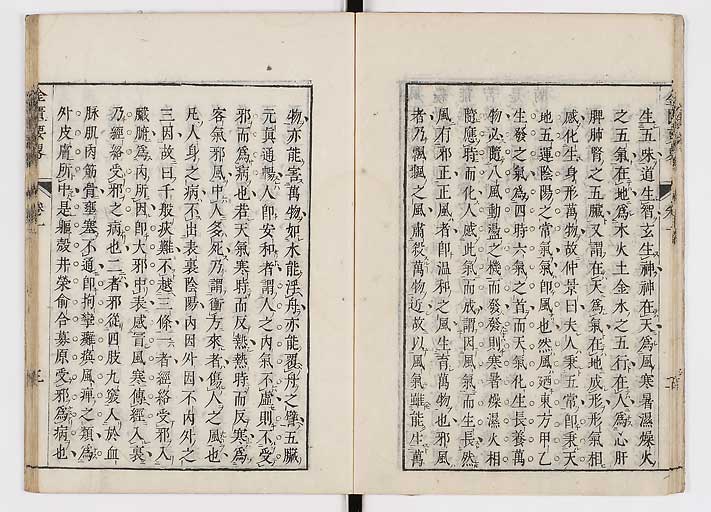 生五味道生智玄生神神在天爲風寒暑濕燥火
之五氣在地爲木火土金水之五行在人爲心肝
脾肺腎之五臟又謂在天爲氣在地成形形氣相
感化生身形萬物故仲景曰夫人秉五常卽秉天
地五運陰陽之常氣氣卽風也然風廼東方甲乙
生發之氣爲四時六氣之首而天氣化生長養萬
物必隨八風動盪之機而發發則寒暑燥濕火相
隨應時而化人感此氣而成謂因風氣而生長然
風有邪正正風者卽溫和之風生育萬物也邪風
者乃飄飄之風肅殺萬物近故以風氣雖能生萬
物亦能害萬物如水能浮舟亦能覆舟之譬五臟
元眞通暢人卽安和者謂人之內氣不虛則不受
邪而爲病也若天氣寒時而反熱熱時而反寒爲
客氣邪風中人多死乃謂衝方來者傷人之風也
凡人身之病不出表裏陰陽內因外因不內外之
三因故曰千般疢難不越三條一者經絡受邪入
臟腑爲內所因卽大邪中表感冒風寒傳經入裏
乃經絡受邪之病也二者邪從四肢九竅入於血
脉肌肉筋骨壅塞不通卽拘攣癱瘓風痺之類爲
外皮膚所中是軀殼井滎俞合募原受邪爲病也
金匱要畧
卷一